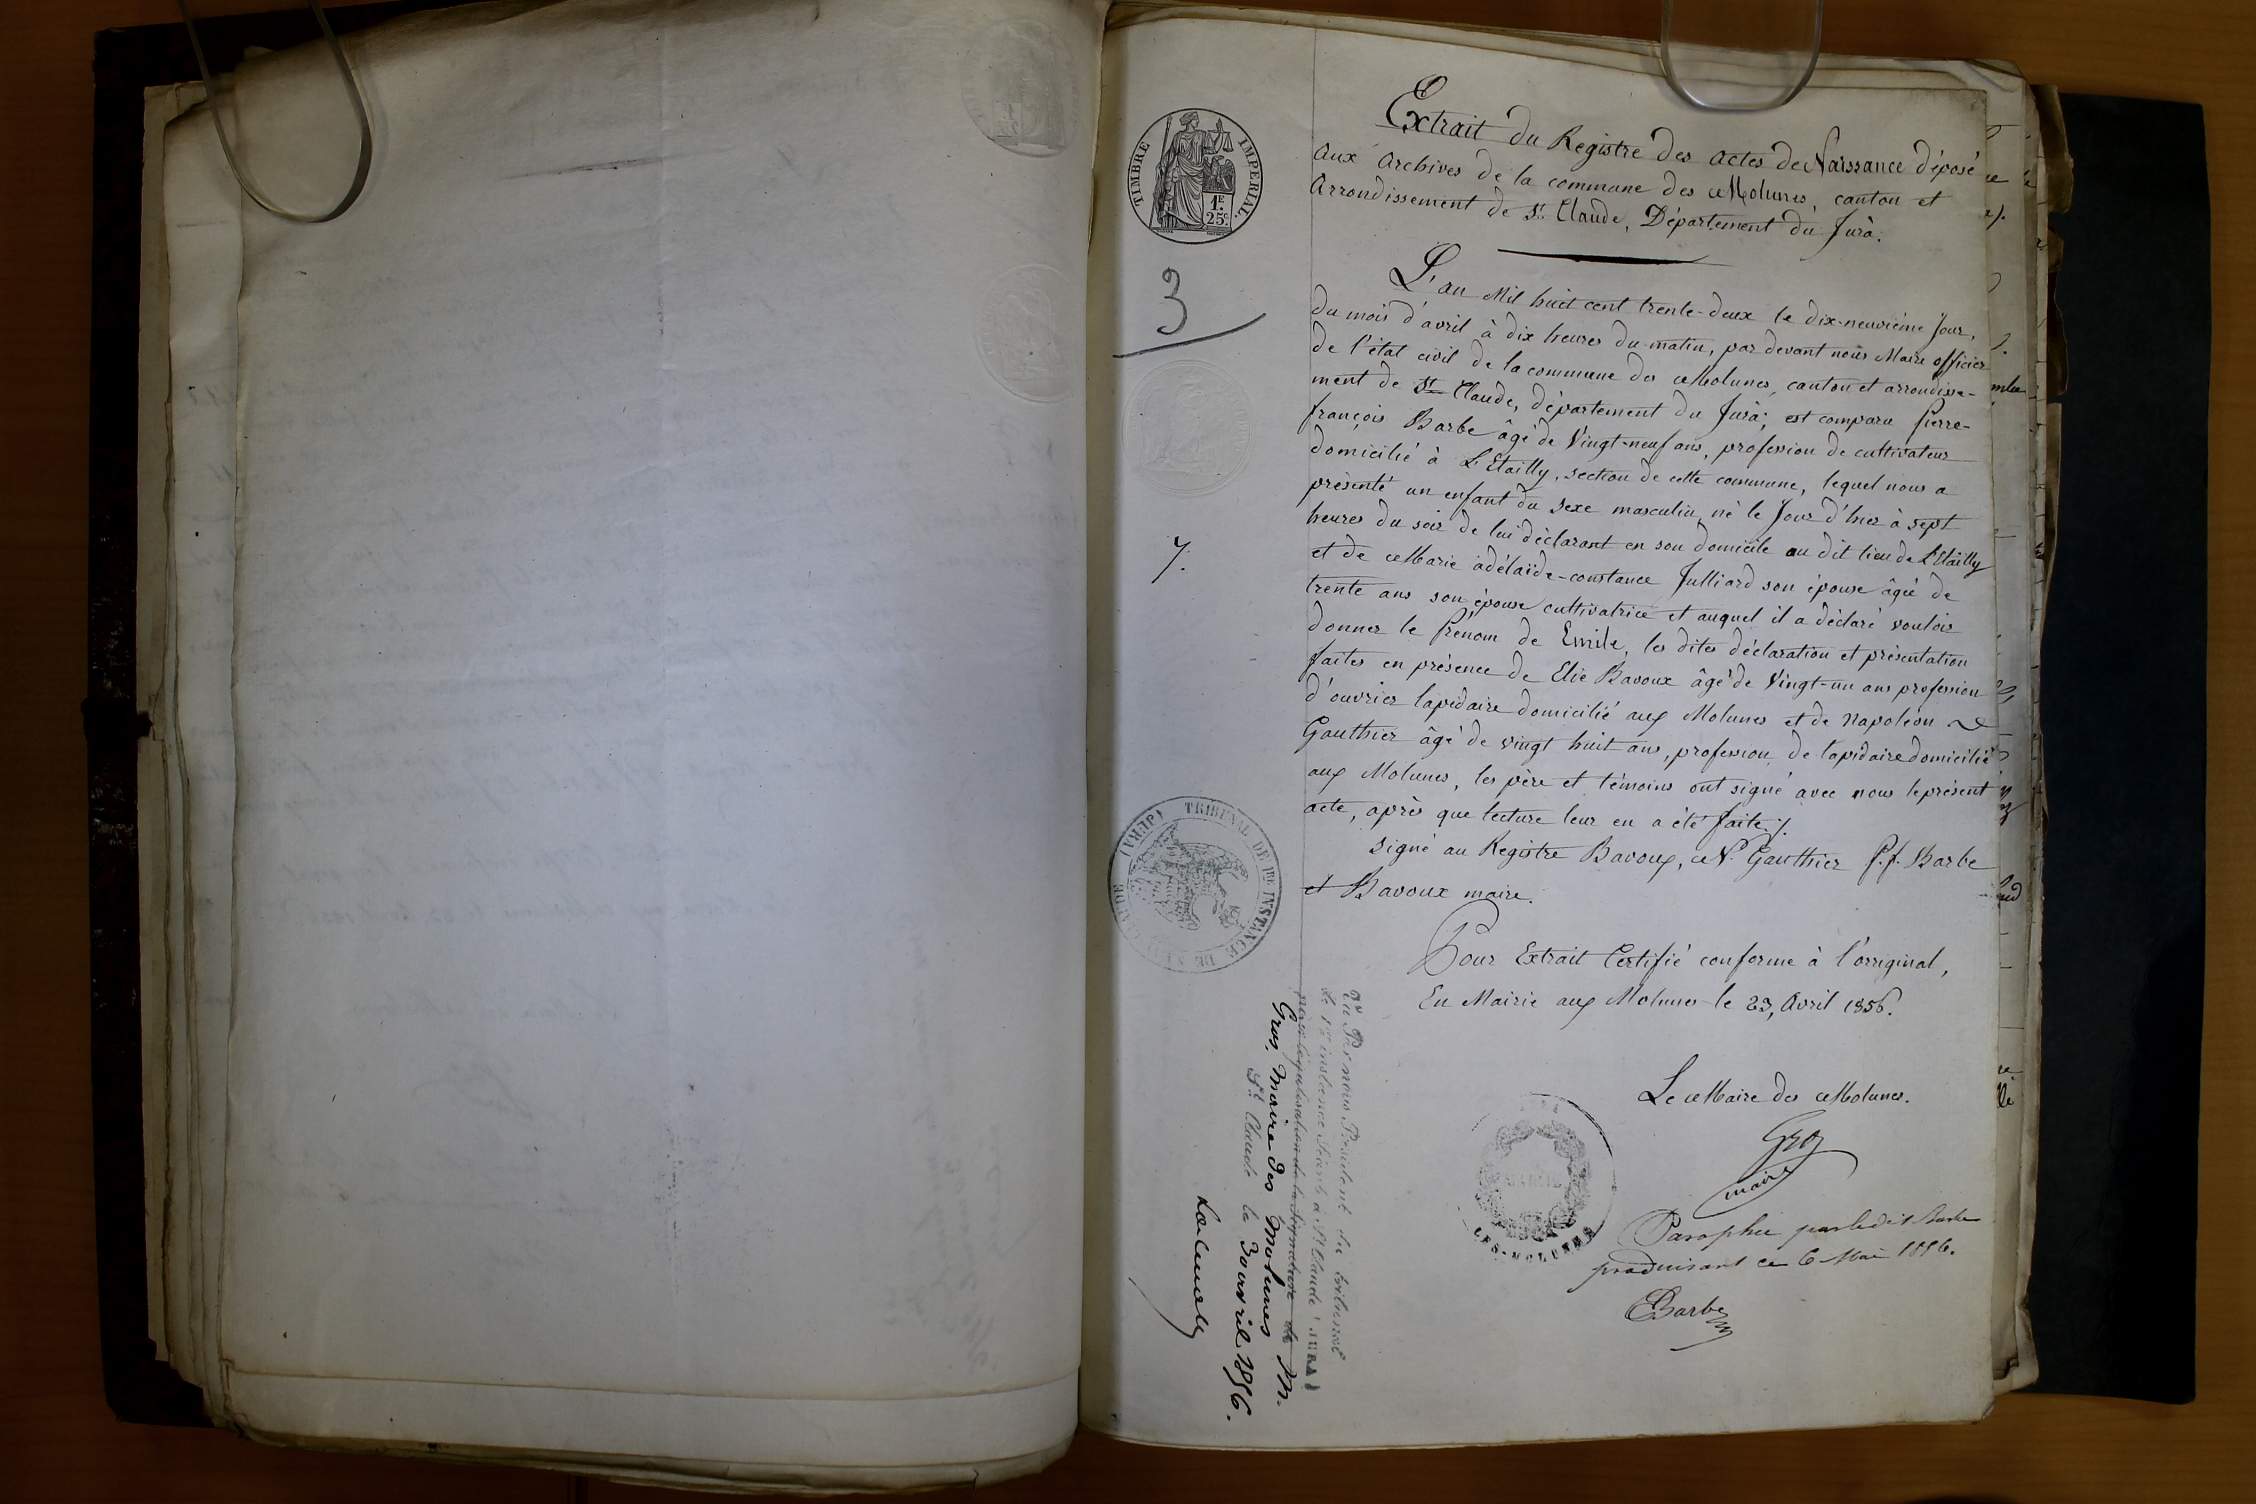 TIMBRE IMPERIAL.
1F. 25c.
3
7.
Extrait du Registre des actes de Naissance déposé
aux archives de la commune des Molunes, canton et
Arrondissement de St. Claude, Département du Jura.
L'an mil huit cent trente-deux le dix-neuvième jour,
du mois d'avril à dix heures du matin, par devant nous Maire officier
de l'état civil de la commune des Molunes, canton et arrondisse-
ment de St. Claude, département du Jura; est comparu Pierre-
françois Barbe âgé de Vingt-neuf ans, profession de cultivateur
domicilié à L'Etailly, section de cette commune, lequel nous a
présenté un enfant du sexe masculin né le Jour d'hier à sept
heures du soir de lui déclarant en son domicile au dit lieu de L'Etailly
et de Marie adélaïde-constance Julliard son épouse âgée de
trente ans son épouse cultivatrice et auquel il a déclaré vouloir
donner le Prénom de Emile, les dites déclaration et présentation
faites en présence de Elie Bavoux âgé de Vingt-un ans profession
d'ouvrier lapidaire domicilié aux Molunes et de Napoléon
Gauthier âgé de vingt huit ans, profession de lapidaire domicilié
aux Molunes, les père et témoins ont signé avec nous le présent
acte, après que lecture leur en a été faite ./.
Signé au Registre Bavoux, N. Gauthier P.f. Barbe
et Bavoux maire.
Pour Extrait Certifié conforme à l'orriginal,
En Mairie aux Molunes le 23, Avril 1856.
Le Maire des Molunes.
Gros
maire
Paraphé par le dit Barbe
produisant ce 6 Mai 1856.
EBarbe
MAIRIE
LES-MOLUNES
TRIBUNAL DE 1RE INSTANCE DE ST CLAUDE (JURA)
Vu Par nous Président du tribunal
de 1re instance Séant à St Claude (JURA)
pour légalisation de la Signature de M.
Gros, Maire des Molunes
St. Claude le 30 avril 1856.